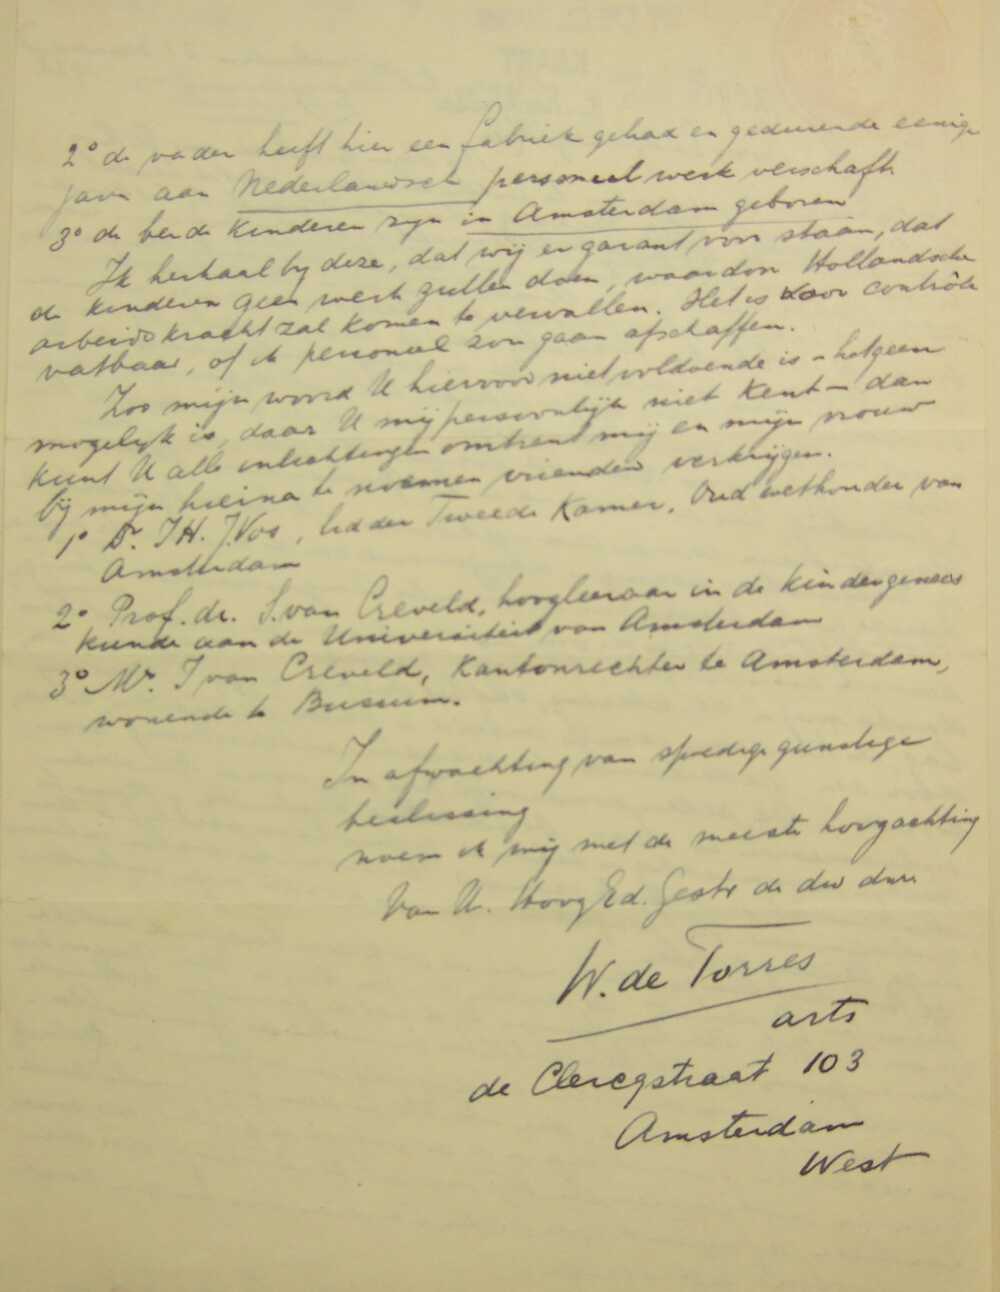 2° de vader heeft hier een fabriek gehad en gedurende eenige
jaren aan Nederlandsch personeel werk verschaft
3° de beide kinderen zijn in Amsterdam geboren
Ik herhaal bij deze, dat wij er garant voor staan, dat
de kinderen geen werk zullen doen, waardoor Hollandsche
arbeidskracht zal komen te vervallen. Het is voor contrôle
vatbaar, of ik personeel zou gaan afschaffen.
Zoo mijn woord U hiervoor niet voldoende is - hetgeen
mogelijk is, daar U mij persoonlijk niet kent - dan
kunt U alle inlichtingen omtrent mij en mijn vrouw
bij mijn hierna te noemen vrienden verkrijgen.
1° Dr. I.H.J. Vos, lid der Tweede Kamer, Oud wethouder van
Amsterdam
2° Prof. dr. S. van Creveld, hoogleeraar in de kindergenees
kunde aan de Universiteit van Amsterdam
3° Mr. I van Creveld, Kantonrechter te Amsterdam,
wonende te Bussum.
In afwachting van spoedige gunstige
beslissing
noem ik mij met de meeste hoogachting
Van U. HoogEd. Gestr de dw dnr
W. de Torres
arts
de Clercqstraat 103
Amsterdam
West